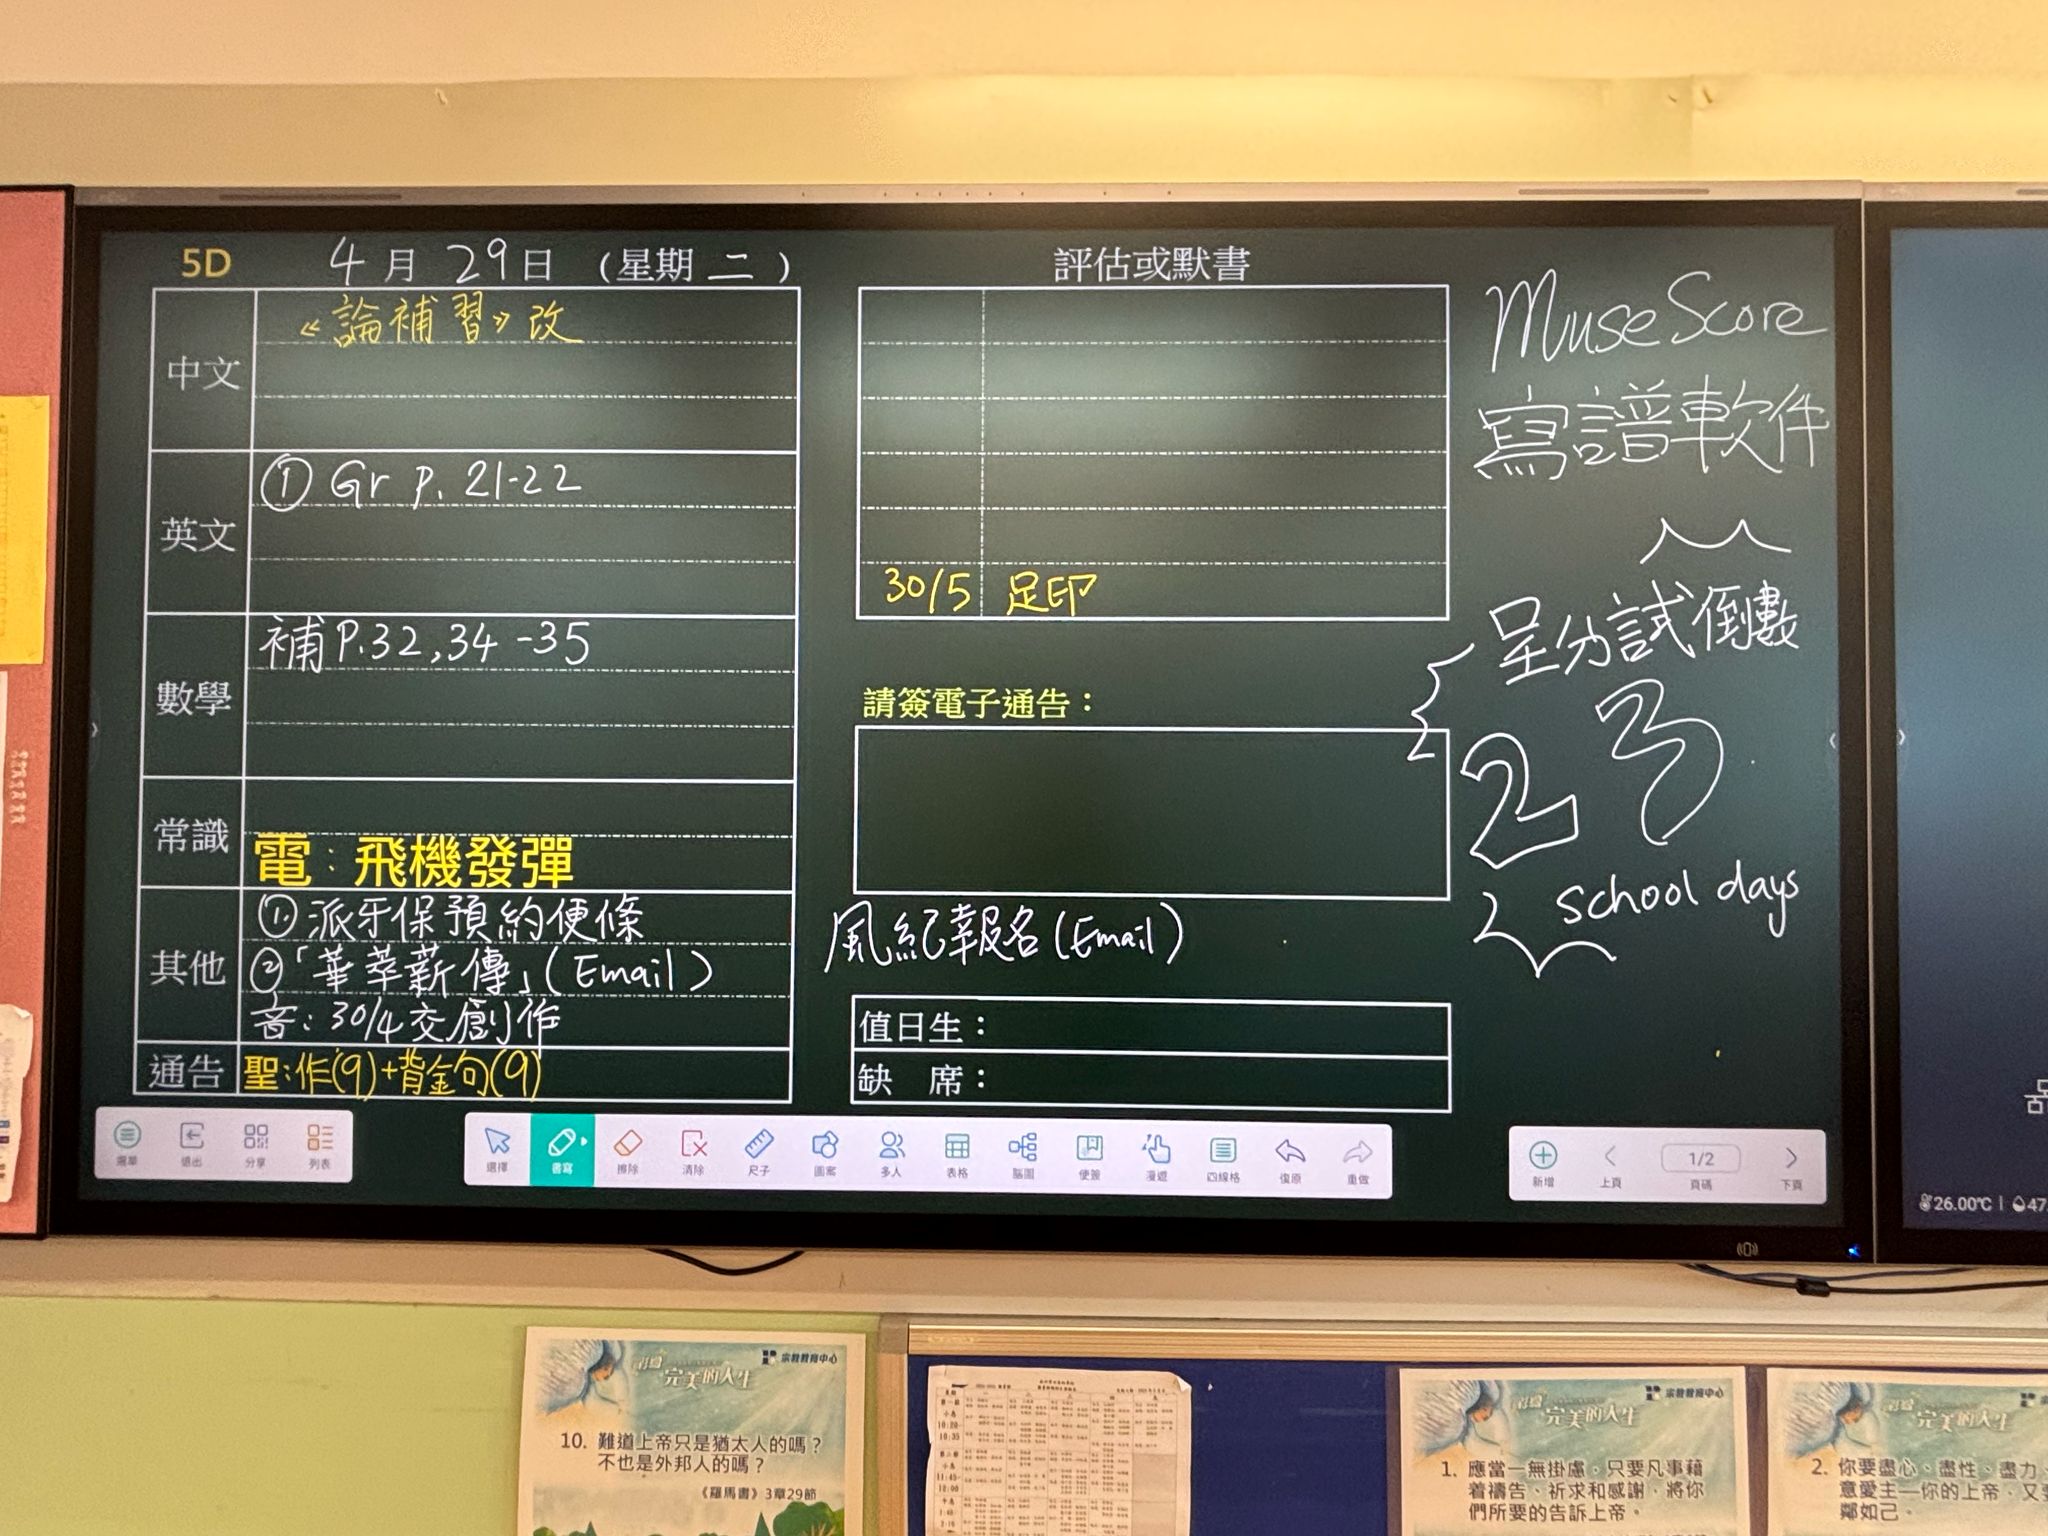 5D 4月29日 (星期二)
中文
《論補習》改
英文
① Gr p. 21-22
數學
補P.32,34-35
常識
電:飛機發彈
其他
①派牙保預約便條
②「華萃薪傳」(Email)
音:30/4交創作
通告
聖:作(9)+背金句(9)
評估或默書
30/5 足印
請簽電子通告:
風紀報名(Email)
值日生:
缺 席:
MuseScore
寫譜軟件
呈分試倒數
23
school days
選單 退出 分享 列表
選擇 書寫 擦除 清除 尺子 圖案 多人 表格 腦圖 便簽 漫遊 四線格 復原 重做
新增 上頁 1/2 頁碼 下頁
26.00℃ | 47
完美的人生
宗教教育中心
10. 難道上帝只是猶太人的嗎?
不也是外邦人的嗎?
《羅馬書》3章29節
完美的人生
宗教教育中心
1. 應當一無掛慮,只要凡事藉
着禱告、祈求和感謝,將你
們所要的告訴上帝。
完美的人生
宗教教
2. 你要盡心、盡性、盡力、
意愛主—你的上帝,又要
鄰如己。